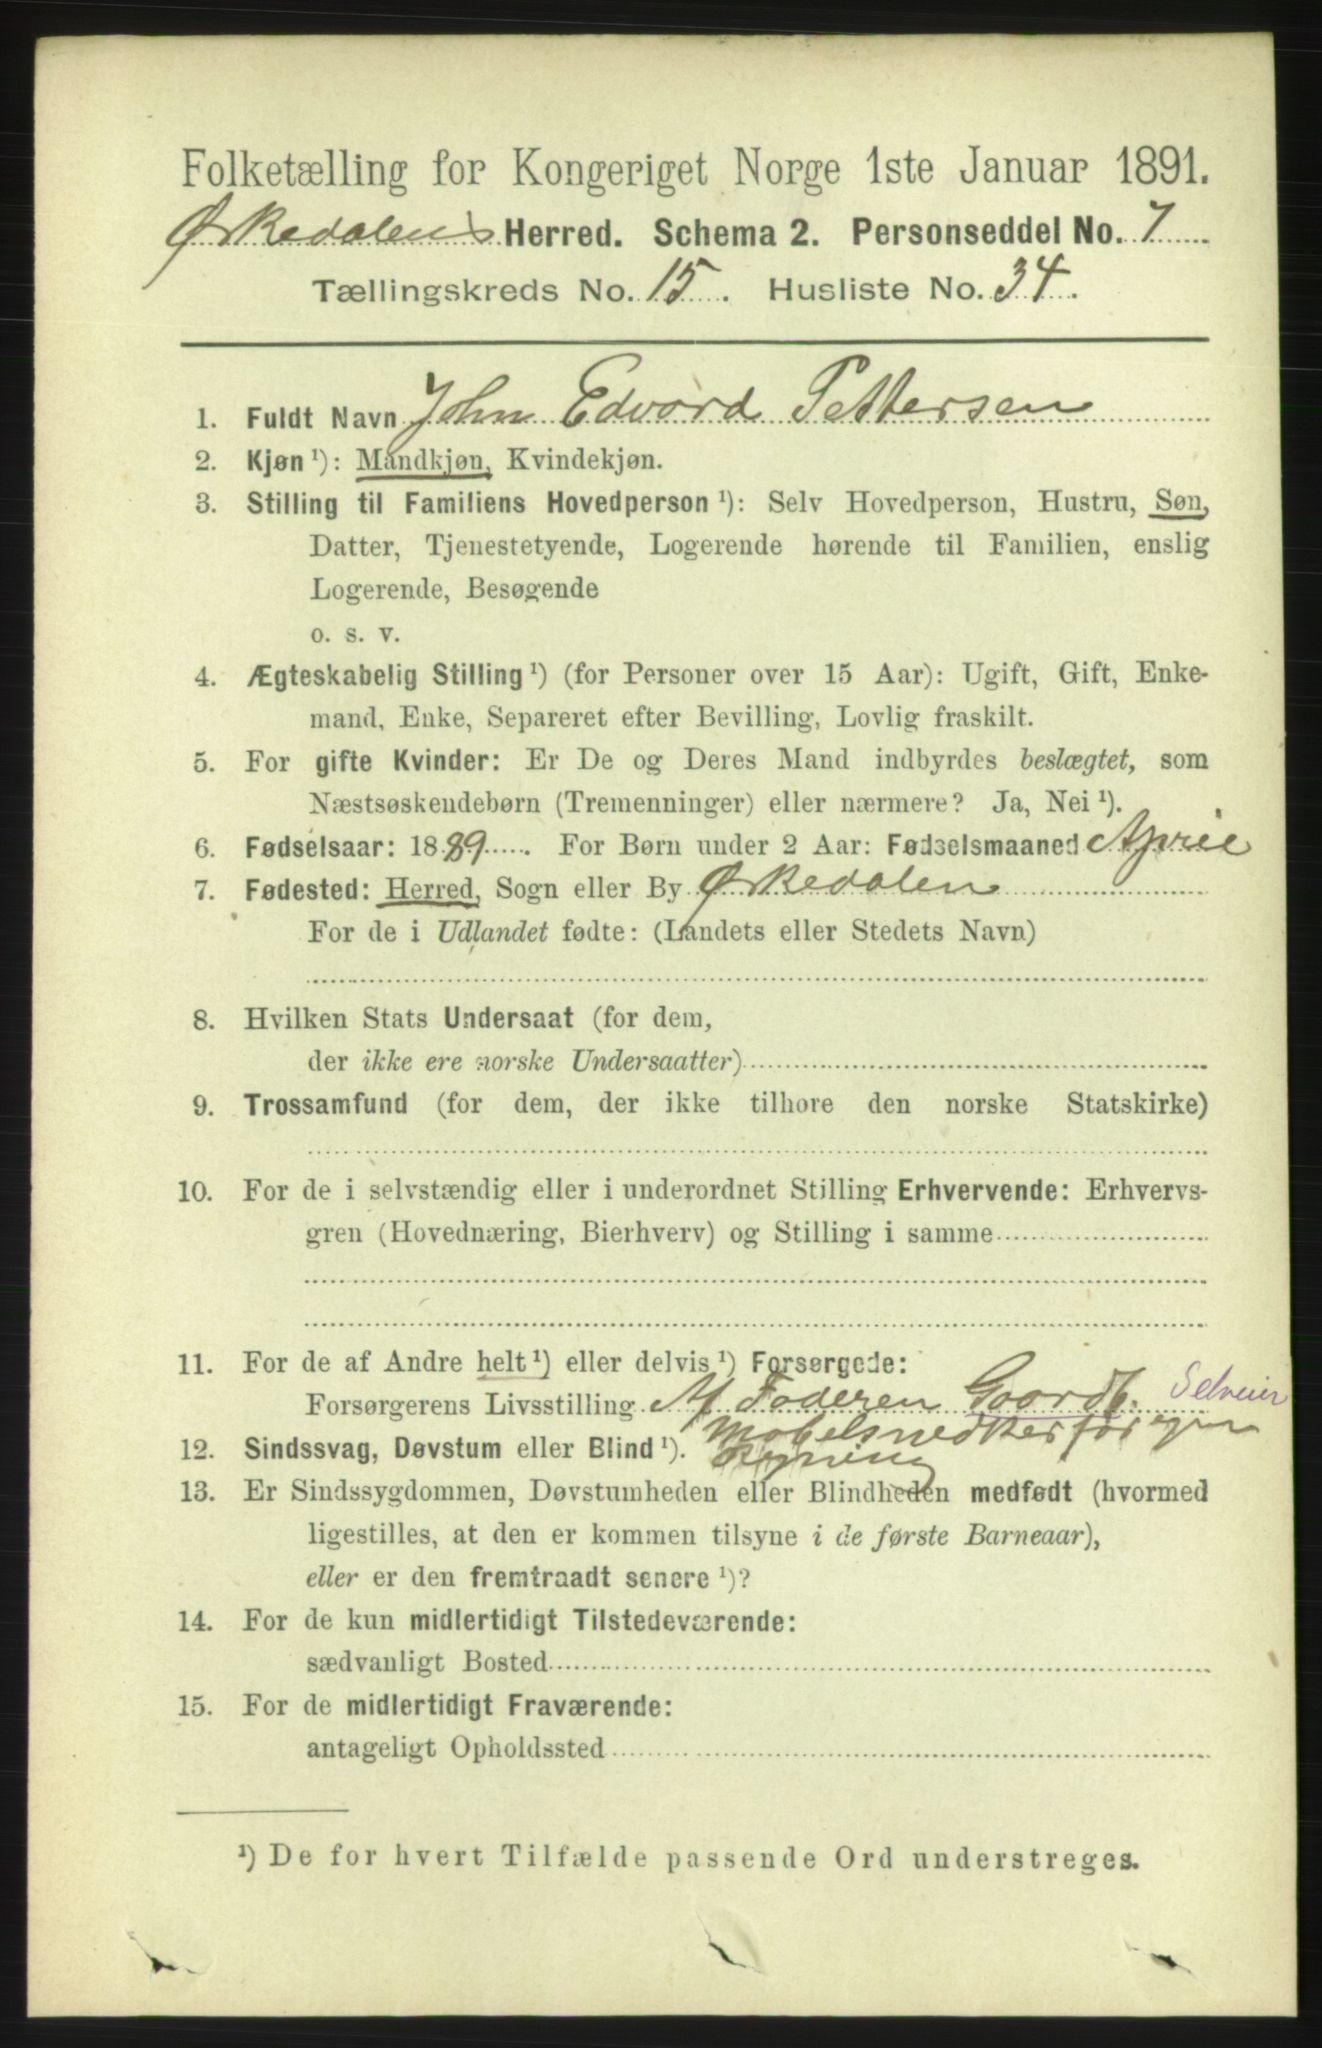 Folketælling for Kongeriget Norge 1ste Januar 1891.
Ørkedalens Herred. Schema 2. Personseddel No. 7
Tællingskreds No. 15. Husliste No. 34.
1. Fuldt Navn John Edvard Pettersen
2. Kjøn ¹): Mandkjøn, Kvindekjøn.
3. Stilling til Familiens Hovedperson ¹): Selv Hovedperson, Hustru, Søn,
Datter, Tjenestetyende, Logerende hørende til Familien, enslig
Logerende, Besøgende
o. s. v.
4. Ægteskabelig Stilling ¹) (for Personer over 15 Aar): Ugift, Gift, Enke-
mand, Enke, Separeret efter Bevilling, Lovlig fraskilt.
5. For gifte Kvinder: Er De og Deres Mand indbyrdes beslægtet, som
Næstsøskendebørn (Tremenninger) eller nærmere? Ja, Nei ¹).
6. Fødselsaar: 1889. For Børn under 2 Aar: Fødselsmaaned April
7. Fødested: Herred, Sogn eller By Ørkedalen
For de i Udlandet fødte: (Landets eller Stedets Navn)
8. Hvilken Stats Undersaat (for dem,
der ikke ere norske Undersaatter)
9. Trossamfund (for dem, der ikke tilhøre den norske Statskirke)
10. For de i selvstændig eller i underordnet Stilling Erhvervende: Erhvervs-
gren (Hovednæring, Bierhverv) og Stilling i samme
11. For de af Andre helt ¹) eller delvis ¹) Forsørgede:
Forsørgerens Livsstilling Af Faderen Gaardb. Selveier
Møbelsnedker for egen
12. Sindssvag, Døvstum eller Blind ¹). Regning
13. Er Sindssygdommen, Døvstumheden eller Blindheden medfødt (hvormed
ligestilles, at den er kommen tilsyne i de første Barneaar),
eller er den fremtraadt senere ¹)?
14. For de kun midlertidigt Tilstedeværende:
sædvanligt Bosted
15. For de midlertidigt Fraværende:
antageligt Opholdssted
¹) De for hvert Tilfælde passende Ord understreges.